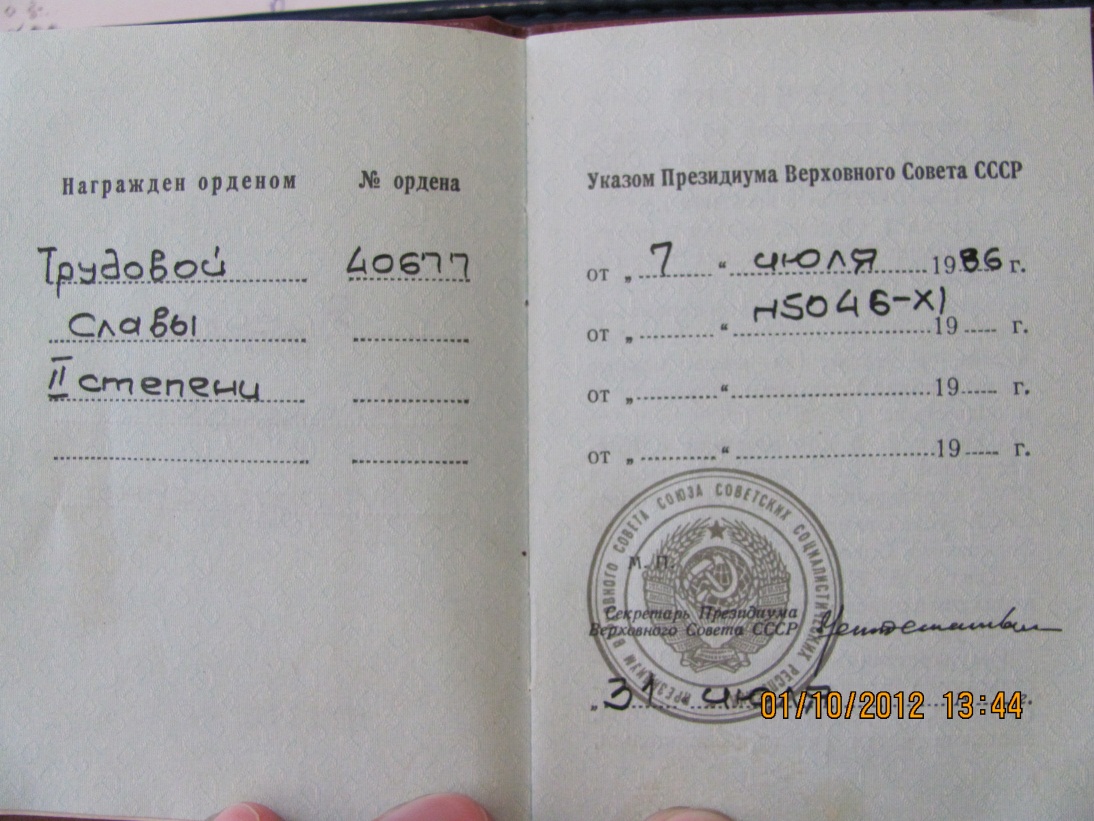 Награжден орденом
№ ордена
Трудовой
40677
Славы
II степени
Указом Президиума Верховного Совета СССР
от „ 7 “ июля 1986 г.
н5046-XI
от „ “ 19 г.
от „ “ 19 г.
от „ “ 19 г.
ПРЕЗИДИУМ ВЕРХОВНОГО СОВЕТА СОЮЗА СОВЕТСКИХ СОЦИАЛИСТИЧЕСКИХ
М. П.
Секретарь Президиума
Верховного Совета СССР
„ 31 июля г.
01/10/2012 13:44